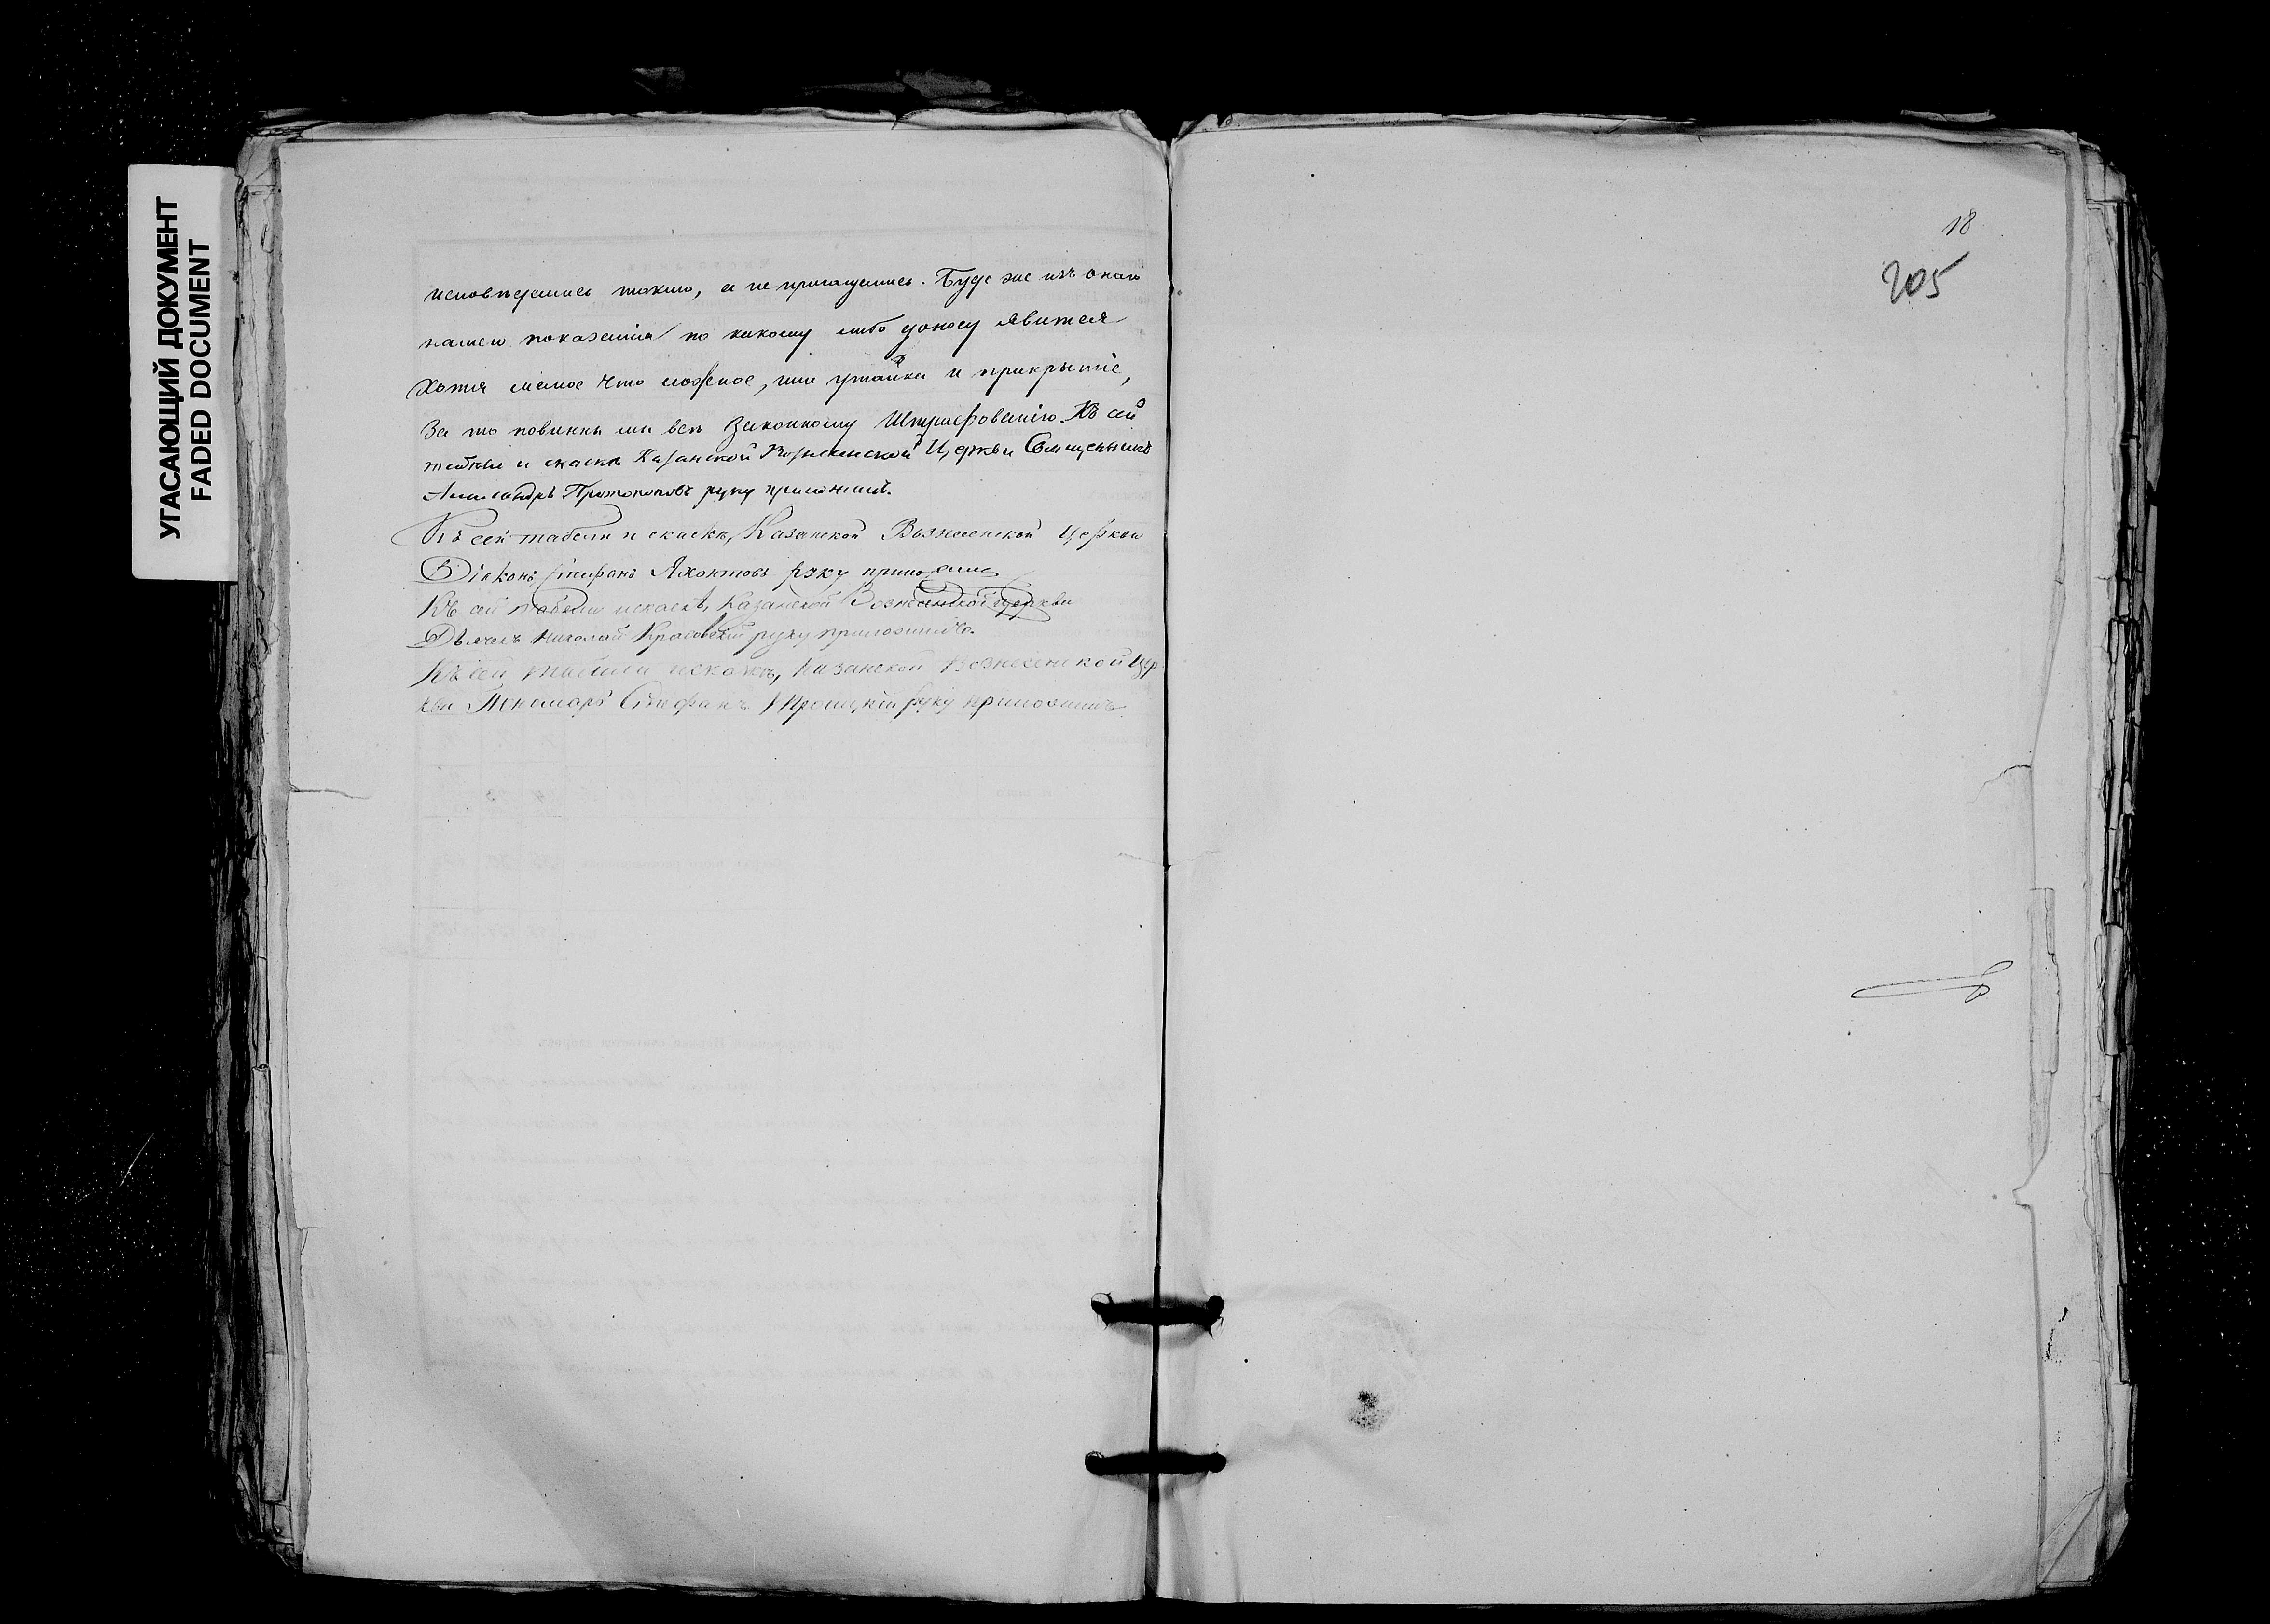 УГАСАЮЩИЙ ДОКУМЕНТ
FADED DOCUMENT
исповѣдались токмо, а не причащались. Буде же изъ онаго
нашего показанія по какому либо доносу явится
хотя малое что ложное, или утайка и прикрытіе,
за то повинны мы всѣ законному Штрафованію. Къ сей
табели и скаскѣ Казанской Вознесенской Церкви Священникъ
Александръ Протопоповъ руку приложилъ.
Къ сей табели и скаскѣ, Казанской Вознесенской Церкви
Діаконъ Стефанъ Яхонтовъ руку приложилъ
Къ сей табели и скаскѣ, Казанской Вознесенской церкви
Дьячекъ Николай руку приложилъ.
Къ сей табели и скаскѣ, Казанской Вознесенской Цер
кви Пономарь Стефанъ Троицкій руку приложилъ
18
205